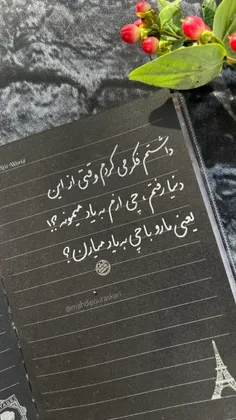 داشتم فکر می کردم وقتی از این
دنیا رفتم، چی ازم به یاد میمونه؟!
یعنی ما رو با چی به یاد میارن؟
@mahdipouraskari